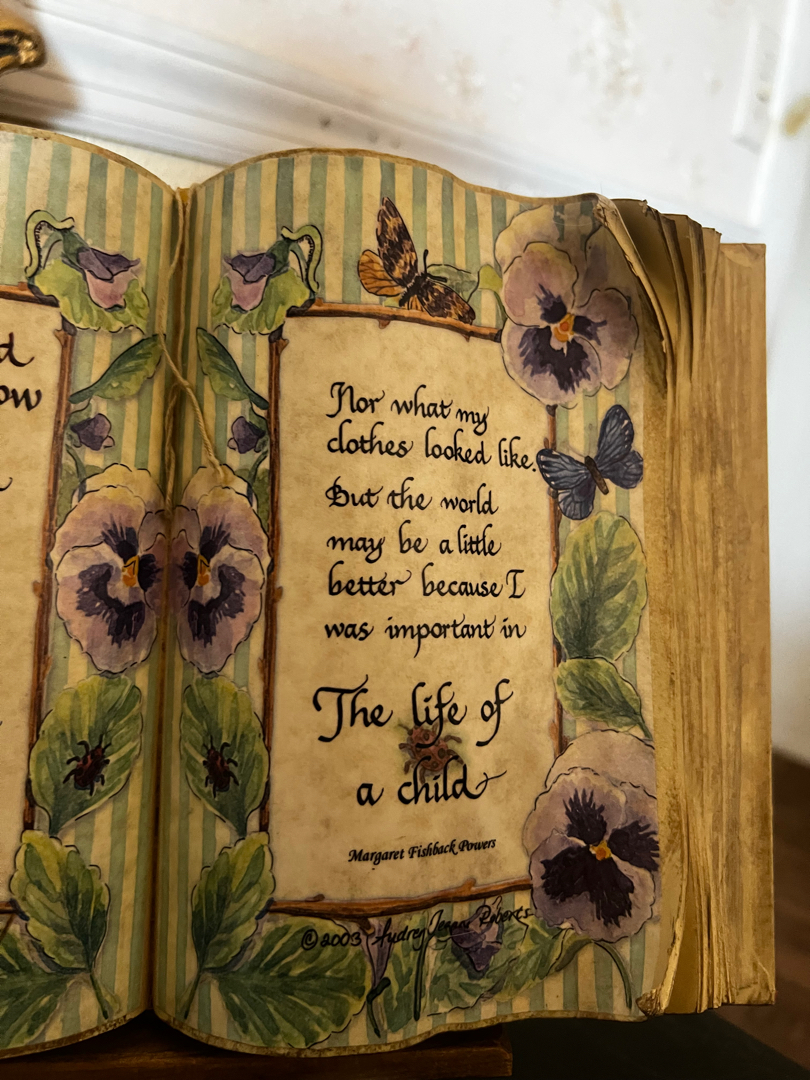 d
ow
Nor what my
clothes looked like.
But the world
may be a little
better because I
was important in
The life of
a child
Margaret Fishback Powers
©2003 Audrey Jeanne Roberts